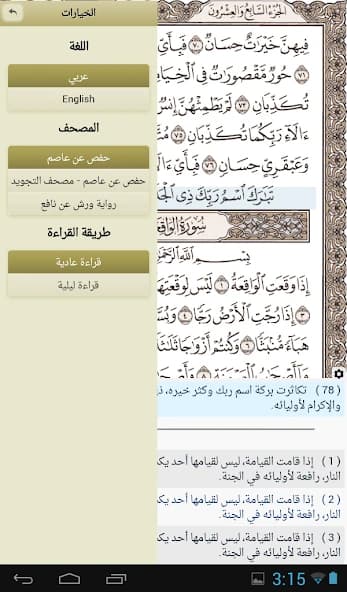 الخيارات
اللغة
عربي
English
المصحف
حفص عن عاصم
حفص عن عاصم - مصحف التجويد
رواية ورش عن نافع
طريقة القراءة
قراءة عادية
قراءة ليلية
الجزء السابع والعشرون
فِيهِنَّ خَيْرَٰتٌ حِسَانٌ ٧٠ فَبِأَيِّ
٧١ حُورٌ مَّقْصُورَٰتٌ فِي ٱلْخِيَامِ
تُكَذِّبَانِ ٧٣ لَمْ يَطْمِثْهُنَّ إِنسٌ
ءَالَآءِ رَبِّكُمَا تُكَذِّبَانِ ٧٥
وَعَبْقَرِيٍّ حِسَانٍ ٧٦ فَبِأَيِّ ءَالَآءِ
تَبَٰرَكَ ٱسْمُ رَبِّكَ ذِي
سُورَةُ الوَاقِعَة
بِسْمِ ٱللَّهِ ٱلرَّحْمَٰنِ
إِذَا وَقَعَتِ ٱلْوَاقِعَةُ ١ لَيْسَ لِوَقْعَتِهَا
٣ إِذَا رُجَّتِ ٱلْأَرْضُ رَجًّا ٤
هَبَآءً مُّنۢبَثًّا ٦ وَكُنتُمْ أَزْوَٰجًا ثَلَٰثَةً
( 78 ) تكاثرت بركة اسم ربك وكثر خيره،
والإكرام لأوليائه.
( 1 ) إذا قامت القيامة، ليس لقيامها أحد
النار، رافعة لأوليائه في الجنة.
( 2 ) إذا قامت القيامة، ليس لقيامها أحد
النار، رافعة لأوليائه في الجنة.
( 3 ) إذا قامت القيامة، ليس لقيامها أحد
النار، رافعة لأوليائه في الجنة.
3:15